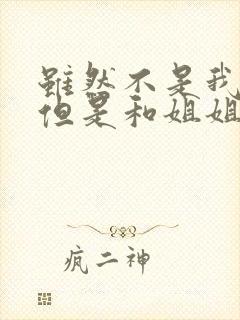 虽然不是我
但是和姐姐
疯二神